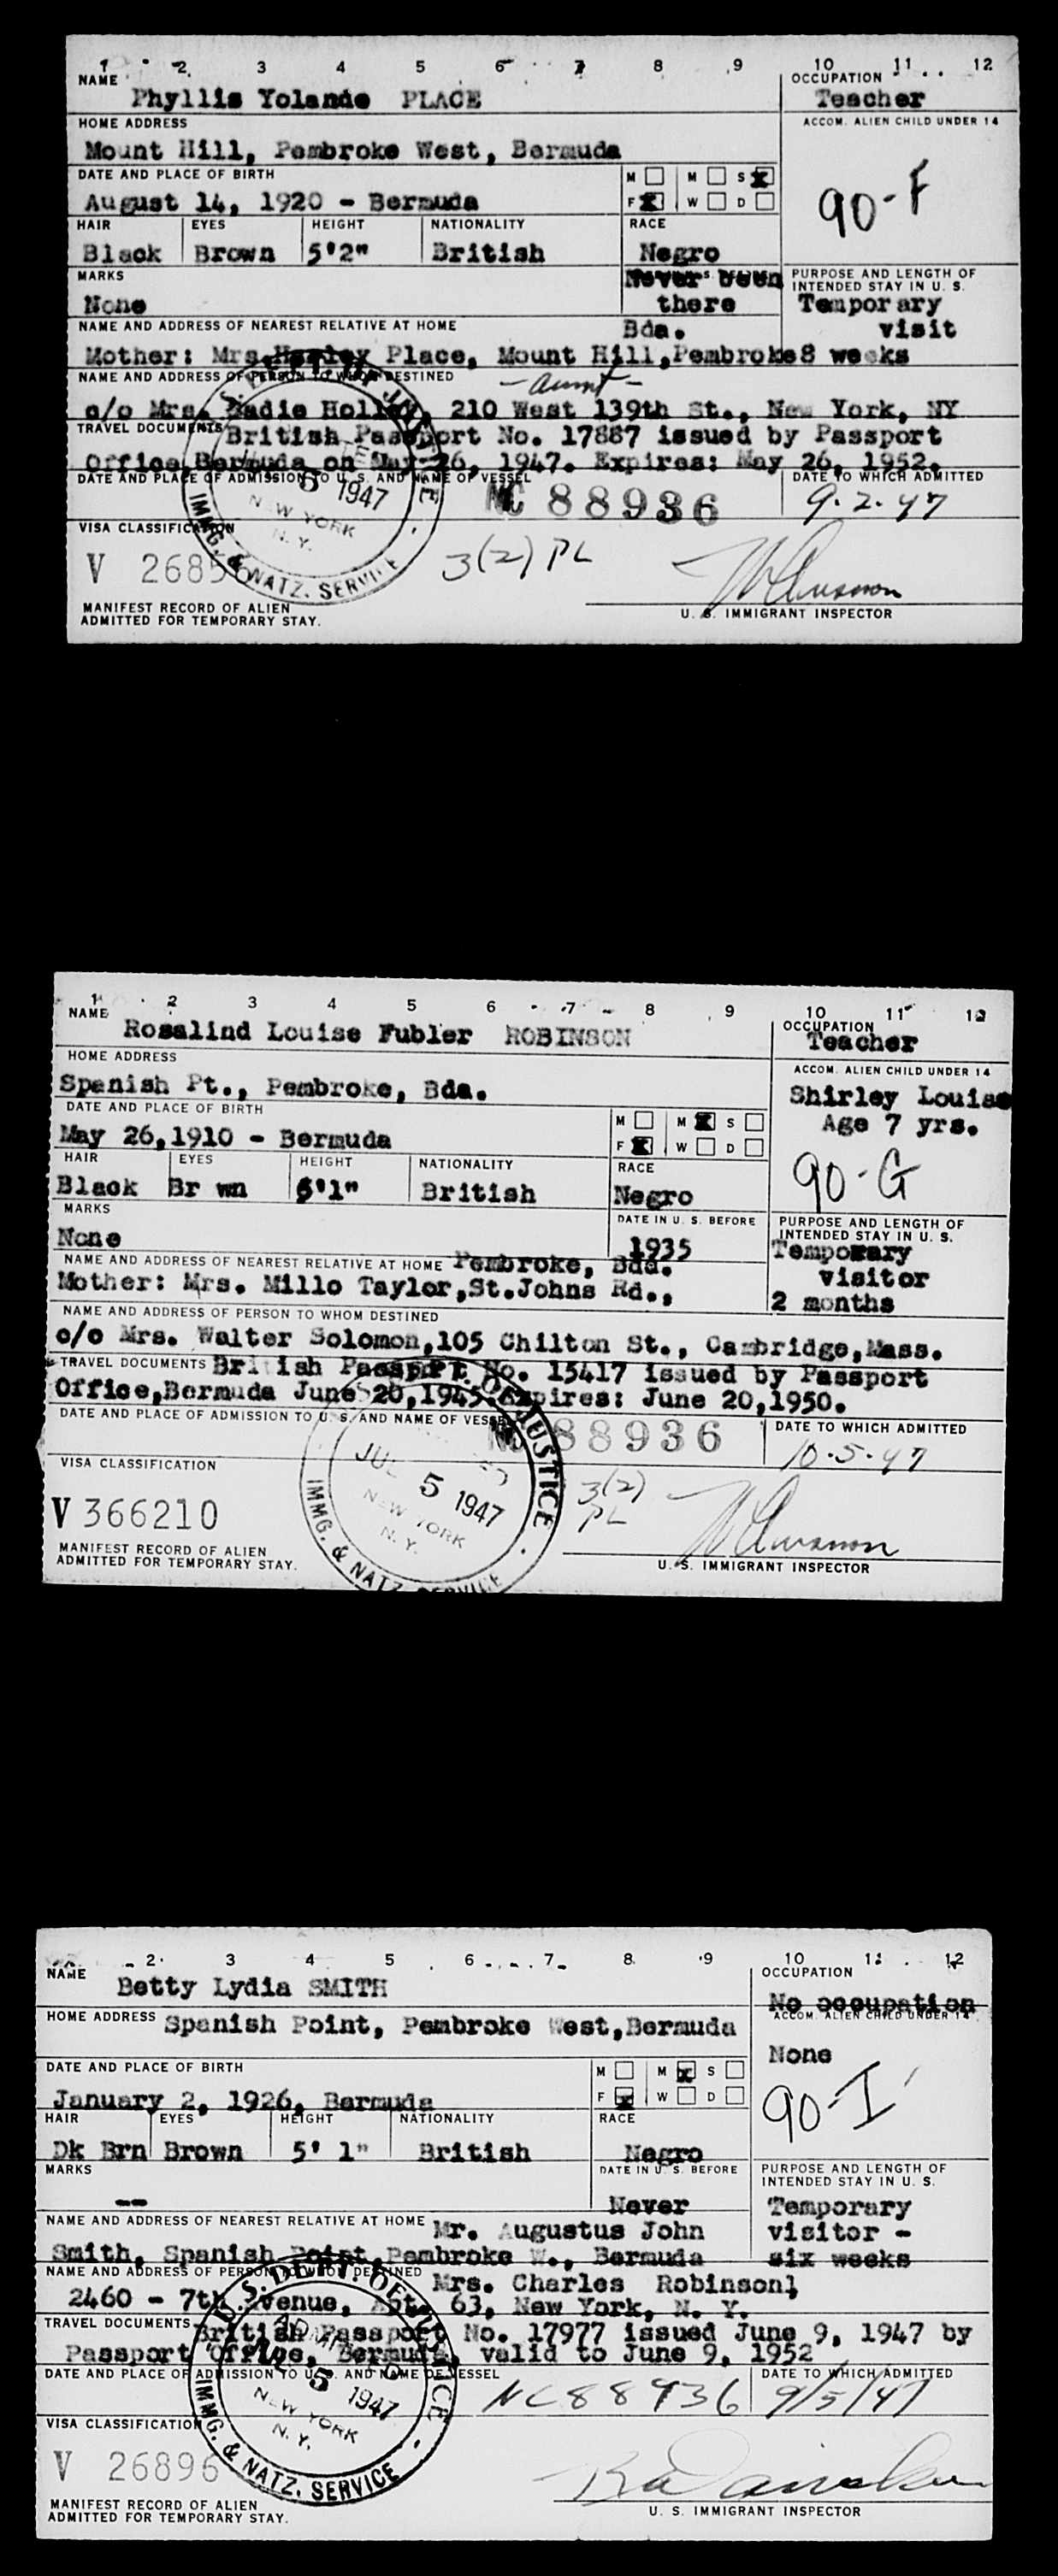 1 2 3 4 5 6 7 8 9 10 11 12
NAME OCCUPATION
Phyllis Yolande PLACE Teacher
HOME ADDRESS ACCOM. ALIEN CHILD UNDER 14
Mount Hill, Pembroke West, Bermuda
DATE AND PLACE OF BIRTH M M S X
August 14, 1920 - Bermuda F X W D 90-F
HAIR EYES HEIGHT NATIONALITY RACE
Black Brown 5'2" British Negro
MARKS Never been PURPOSE AND LENGTH OF
INTENDED STAY IN U. S.
None there Temporary
NAME AND ADDRESS OF NEAREST RELATIVE AT HOME Bda. visit
Mother: Mrs. Place, Mount Hill, Pembroke 8 weeks
NAME AND ADDRESS OF PERSON TO WHOM DESTINED - aunt -
c/o Mrs. Sadie Holley, 210 West 139th St., New York, NY
TRAVEL DOCUMENTS British Passport No. 17887 issued by Passport
Office, Bermuda on May 26, 1947. Expires: May 26, 1952.
DATE AND PLACE OF ADMISSION TO U. S. AND NAME OF VESSEL DATE TO WHICH ADMITTED
5 1947 NC 88936 9.2.47
NEW YORK
N. Y.
VISA CLASSIFICATION
V 26856 3(2) PL
IMMG. & NATZ. SERVICE
MANIFEST RECORD OF ALIEN
ADMITTED FOR TEMPORARY STAY. U. S. IMMIGRANT INSPECTOR
1 2 3 4 5 6 7 8 9 10 11 12
NAME OCCUPATION
Rosalind Louise Fubler ROBINSON Teacher
HOME ADDRESS ACCOM. ALIEN CHILD UNDER 14
Spanish Pt., Pembroke, Bda. Shirley Louise
DATE AND PLACE OF BIRTH M M X S Age 7 yrs.
May 26,1910 - Bermuda F X W D
HAIR EYES HEIGHT NATIONALITY RACE 90-G
Black Br wn 5'1" British Negro
MARKS DATE IN U. S. BEFORE PURPOSE AND LENGTH OF
INTENDED STAY IN U. S.
None 1935 Temporary
NAME AND ADDRESS OF NEAREST RELATIVE AT HOME Pembroke, Bda. visitor
Mother: Mrs. Millo Taylor,St.Johns Rd., 2 months
NAME AND ADDRESS OF PERSON TO WHOM DESTINED
c/o Mrs. Walter Solomon,105 Chilton St., Cambridge,Mass.
TRAVEL DOCUMENTS British Passport No. 15417 issued by Passport
Office,Bermuda June 20,1945.Expires: June 20,1950.
DATE AND PLACE OF ADMISSION TO U. S. AND NAME OF VESSEL DATE TO WHICH ADMITTED
NC 88936 10.5.47
VISA CLASSIFICATION JUL 5 1947 3(2)
PL
NEW YORK
N. Y.
V 366210
IMMG. & NATZ. SERVICE
MANIFEST RECORD OF ALIEN
ADMITTED FOR TEMPORARY STAY. U. S. IMMIGRANT INSPECTOR
2 3 4 5 6 7 8 9 10 11 12
NAME OCCUPATION
Betty Lydia SMITH No occupation
HOME ADDRESS Spanish Point, Pembroke West,Bermuda ACCOM. ALIEN CHILD UNDER 14
None
DATE AND PLACE OF BIRTH M M X S
January 2, 1926, Bermuda F X W D 90-I
HAIR EYES HEIGHT NATIONALITY RACE
Dk Brn Brown 5' 1" British Negro
MARKS DATE IN U. S. BEFORE PURPOSE AND LENGTH OF
INTENDED STAY IN U. S.
-- Never Temporary
NAME AND ADDRESS OF NEAREST RELATIVE AT HOME Mr. Augustus John visitor -
Smith, Spanish Point,Pembroke W., Bermuda six weeks
NAME AND ADDRESS OF PERSON TO WHOM DESTINED Mrs. Charles Robinson,
2460 - 7th Avenue, Apt. 63, New York, N. Y.
TRAVEL DOCUMENTS British Passport No. 17977 issued June 9, 1947 by
Passport Office, Bermuda, valid to June 9, 1952
DATE AND PLACE OF ADMISSION TO U. S. AND NAME OF VESSEL DATE TO WHICH ADMITTED
5 1947 NC88936 9/5/47
U. S. DEPT. OF JUSTICE
NEW YORK
N. Y.
VISA CLASSIFICATION
V 26896
IMMG. & NATZ. SERVICE
MANIFEST RECORD OF ALIEN
ADMITTED FOR TEMPORARY STAY. U. S. IMMIGRANT INSPECTOR